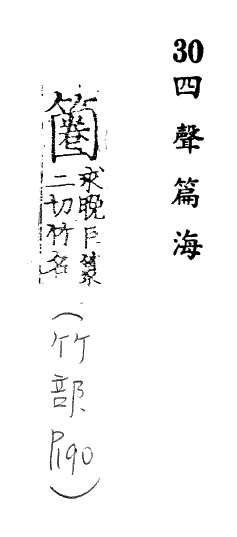 30四聲篇海
求晚巨篆
二切竹名
(竹部P190)